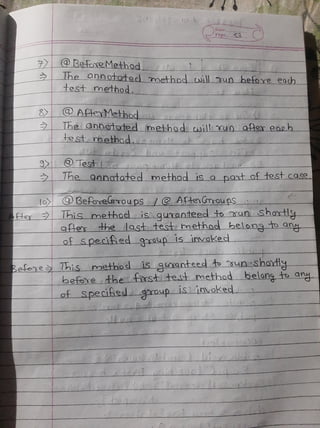 Page: 53
7) @BeforeMethod
⇒ The annotated method will run before each
test method.
8) @AfterMethod
⇒ The annotated method will run after each
test method.
9) @Test
⇒ The annotated method is a part of test case
10) @BeforeGroups / @AfterGroups
After ⇒ This method is guranteed to run shortly
after the last test method belong to any
of specified group is invoked
Before ⇒ This method is guranteed to run shortly
before the first test method belong to any
of specified group is invoked